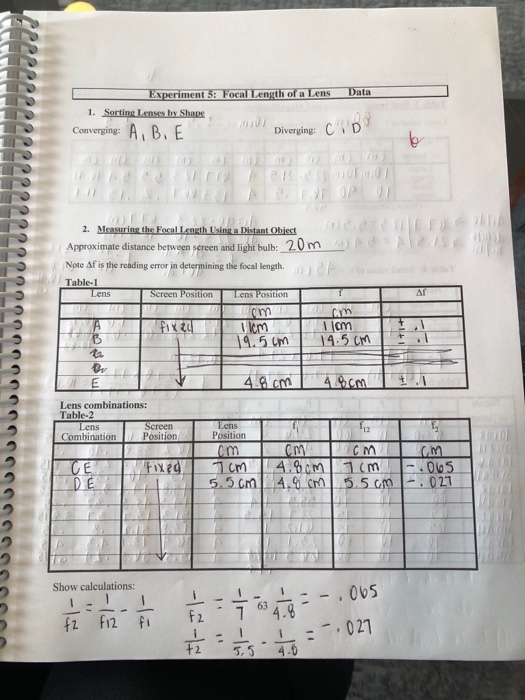 Experiment 5: Focal Length of a Lens Data
1. Sorting Lenses by Shape
Converging: A, B, E Diverging: C, D
2. Measuring the Focal Length Using a Distant Object
Approximate distance between screen and light bulb: 20m
Note Δf is the reading error in determining the focal length.
Table-1
Lens Screen Position Lens Position f Δf
cm cm
A fixed 11cm 11cm ± .1
B 19.5 cm 19.5 cm ± .1
E 4.8 cm 4.8cm ± .1
Lens combinations:
Table-2
Lens Combination Screen Position Lens Position f1 f12 f2
cm cm cm cm
CE fixed 7cm 4.8cm 7cm -.065
DE 5.5cm 4.8cm 5.5cm -.027
Show calculations:
1/f2 = 1/f12 - 1/f1 1/f2 = 1/7 - 1/4.8 = -.065
63
1/f2 = 1/5.5 - 1/4.8 = -.027